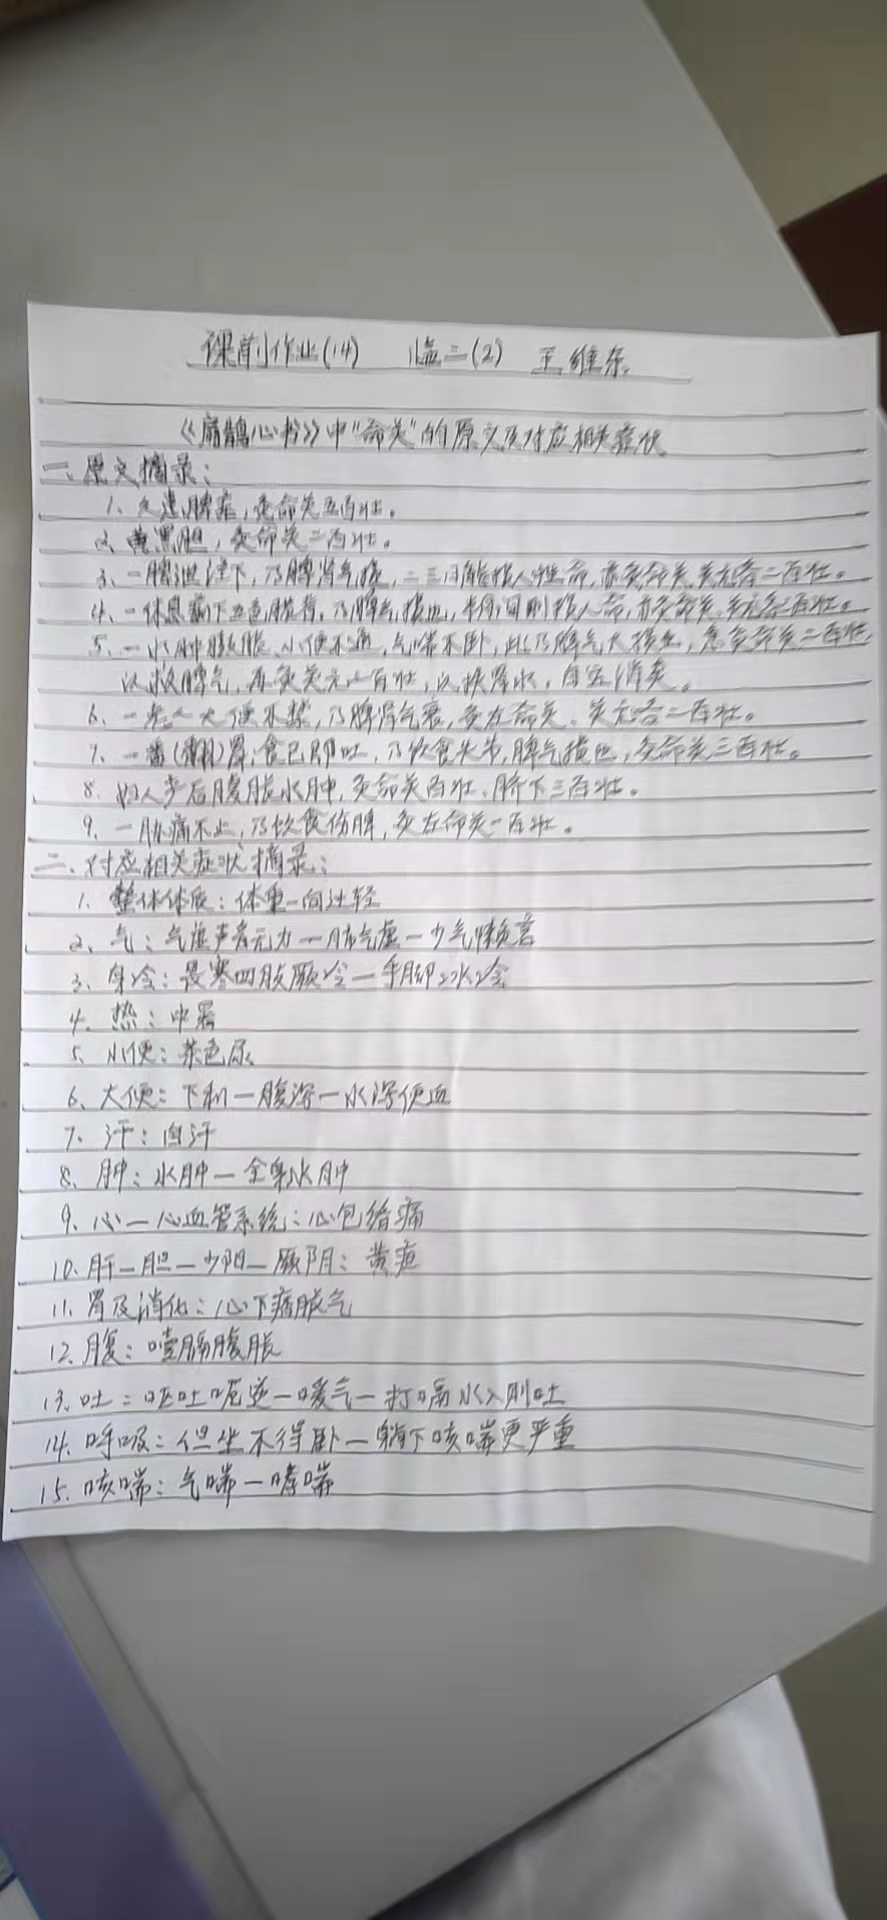 课前作业(14) 临二(2) 王维东
《扁鹊心书》中"命关"的原文及对应相关症状
一、原文摘录：
1、久患脾疟，灸命关五百壮。
2、黄黑胆，灸命关二百壮。
3、一脾泄注下，乃脾肾气损，二三日能损人性命，亦灸命关、关元各二百壮。
4、一休息痢下五色脓者，乃脾气损也，半月间则损人命，亦灸命关、关元各三百壮。
5、一水肿膨胀、小便不通，气喘不卧，此乃脾气大损也，急灸命关二百壮，
以救脾气，再灸关元三百壮，以扶肾水，自运消矣。
6、一老人大便不禁，乃脾肾气衰，灸左命关、关元各二百壮。
7、一番(翻)胃，食已即吐，乃饮食失节，脾气损也，灸命关三百壮。
8、妇人产后腹胀水肿，灸命关百壮、脐下三百壮。
9、一胁痛不止，乃饮食伤脾，灸左命关一百壮。
二、对应相关症状摘录：
1、整体体质：体重一向过轻
2、气：气虚声音无力一肺气虚一少气懒言
3、身冷：畏寒四肢厥冷一手脚冰冷
4、热：中暑
5、小便：茶色尿
6、大便：下利一腹泻一水泻便血
7、汗：自汗
8、肿：水肿一全身水肿
9、心一心血管系统：心包络痛
10、肝一胆一少阳一厥阴：黄疸
11、胃及消化：心下痞胀气
12、腹：噎膈腹胀
13、吐：呕吐呃逆一嗳气一打嗝水入则吐
14、呼吸：但坐不得卧一躺下咳喘更严重
15、咳喘：气喘一哮喘